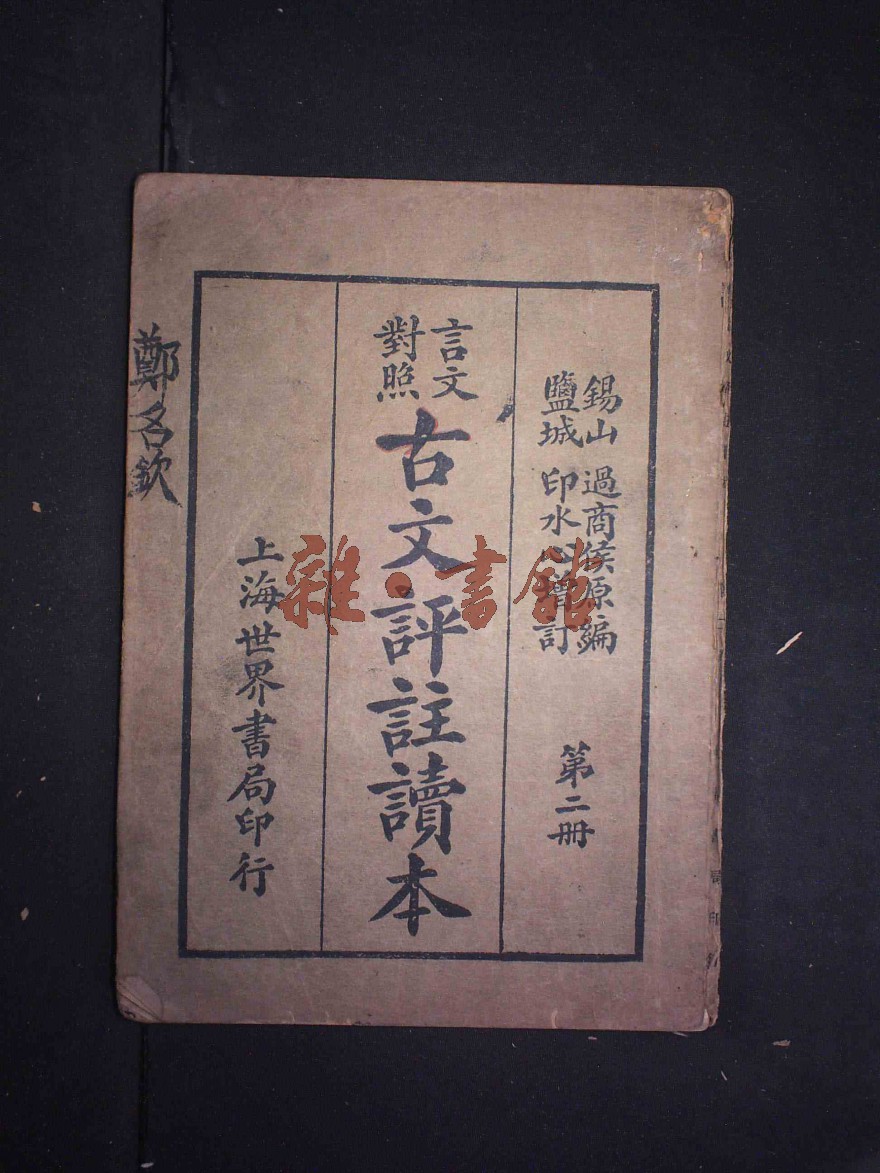 錫山 過商侯原編
鹽城 印水心增訂
第二冊
言文
對照
古文評註讀本
上海世界書局印行
鄭名欽
雜·書館